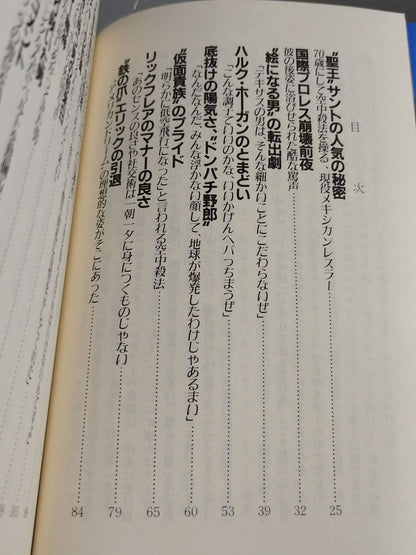 目次
“聖王”サントの人気の秘密
70歳にして空中殺法を操る、現役メキシカンレスラー……25
国際プロレス崩壊前夜
彼の後姿に浴びせられた酷な罵声……32
“絵になる男”の転出劇
「テキサスの男は、そんな細かいことにこだわらないぜ」……39
ハルク・ホーガンのとまどい
「こんな調子でいいのかな、いいかげんヘバっちまうぜ」……53
底抜けの陽気さ、“ドンパチ野郎”
「なんだなんだ、みんな浮かない顔して、地球が爆発したわけじゃあるまい」……60
“仮面貴族”のプライド
「明らかに低空飛行になった」と言われる空中殺法……65
リック・フレアのマナーの良さ
あのセンスの良さや社交術は一朝一夕に身につくものじゃない……79
“鉄の爪”エリックの引退
“アメリカンドリーム”の理想的な姿がそこにあった……84